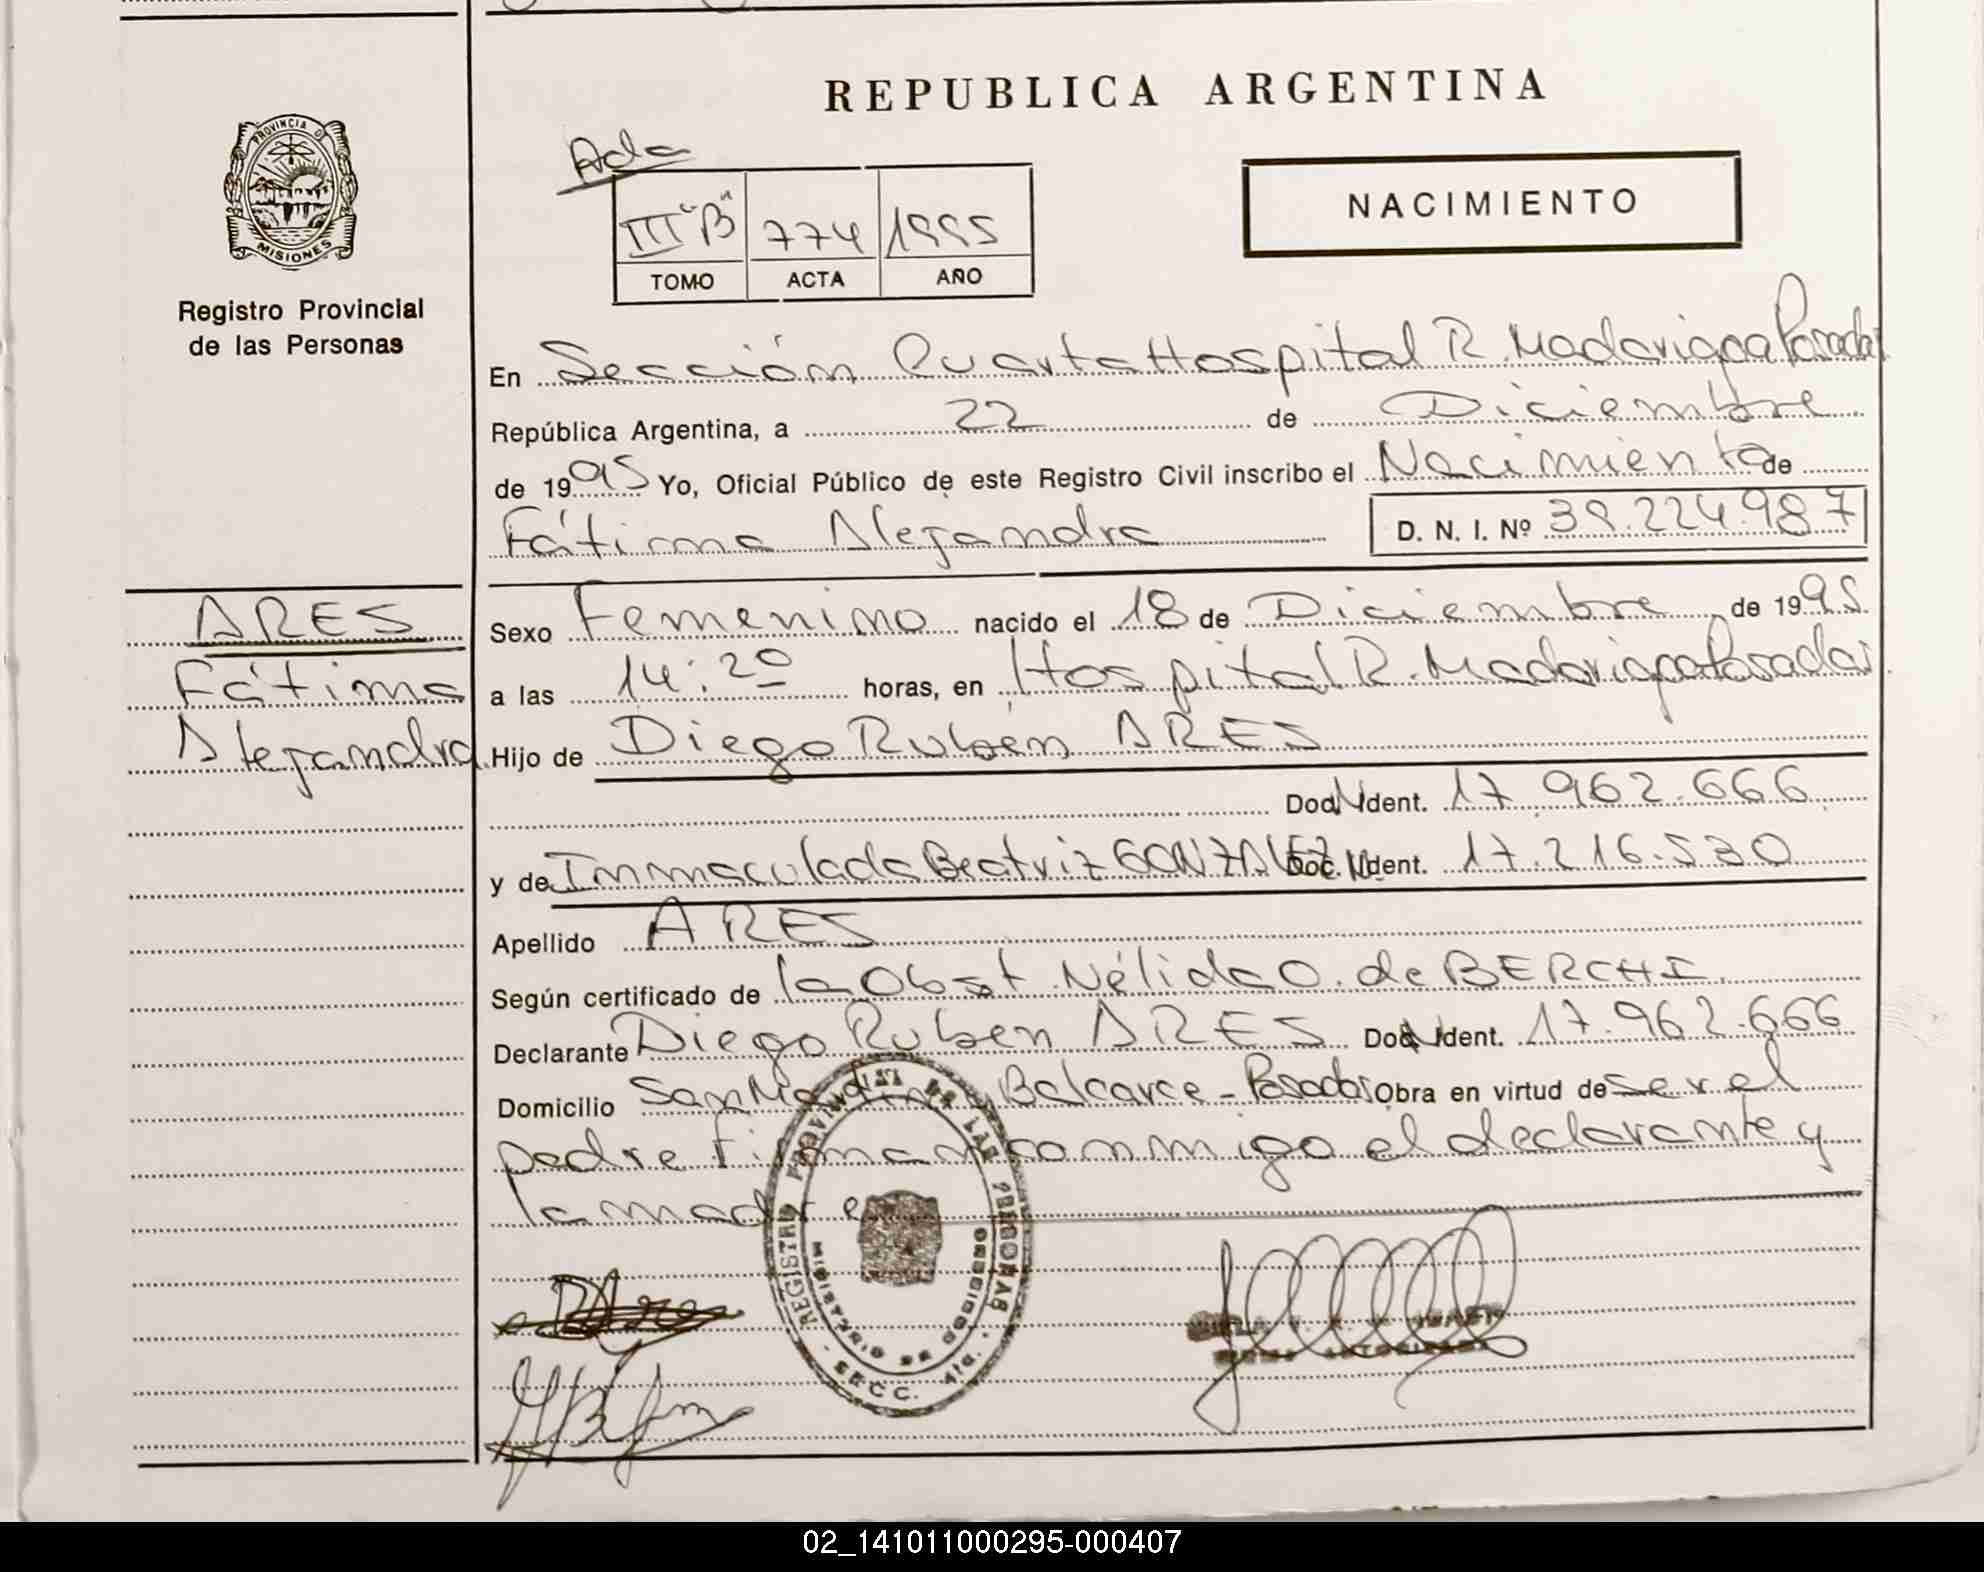 REPUBLICA ARGENTINA
PROVINCIA D
MISIONES
Registro Provincial
de las Personas
III "B" 774 1995
TOMO ACTA AÑO
NACIMIENTO
En Sección Cuarta Hospital R. Madariaga Posadas
República Argentina, a 22 de Diciembre
de 1995 Yo, Oficial Público de este Registro Civil inscribo el Nacimiento de
Fátima Alejandra D. N. I. Nº 39.224.987
ARES
Fátima
Alejandra
Sexo Femenino nacido el 18 de Diciembre de 1995
a las 14:20 horas, en Hospital R. Madariaga Posadas
Hijo de Diego Rubén ARES
Doc. Ident. 17.962.666
y de Inmaculada Beatriz GONZALEZ Doc. Ident. 17.216.530
Apellido ARES
Según certificado de la Obst. Nélida O. de BERCHI
Declarante Diego Ruben ARES Doc. Ident. 17.962.666
Domicilio San Martín y Balcarce - Posadas Obra en virtud de ser el
padre Firman conmigo el declarante y
la madre
REGISTRO PROVINCIAL DE LAS PERSONAS
MINISTERIO DE GOBIERNO
- SECC. 4ta. -
02_141011000295-000407